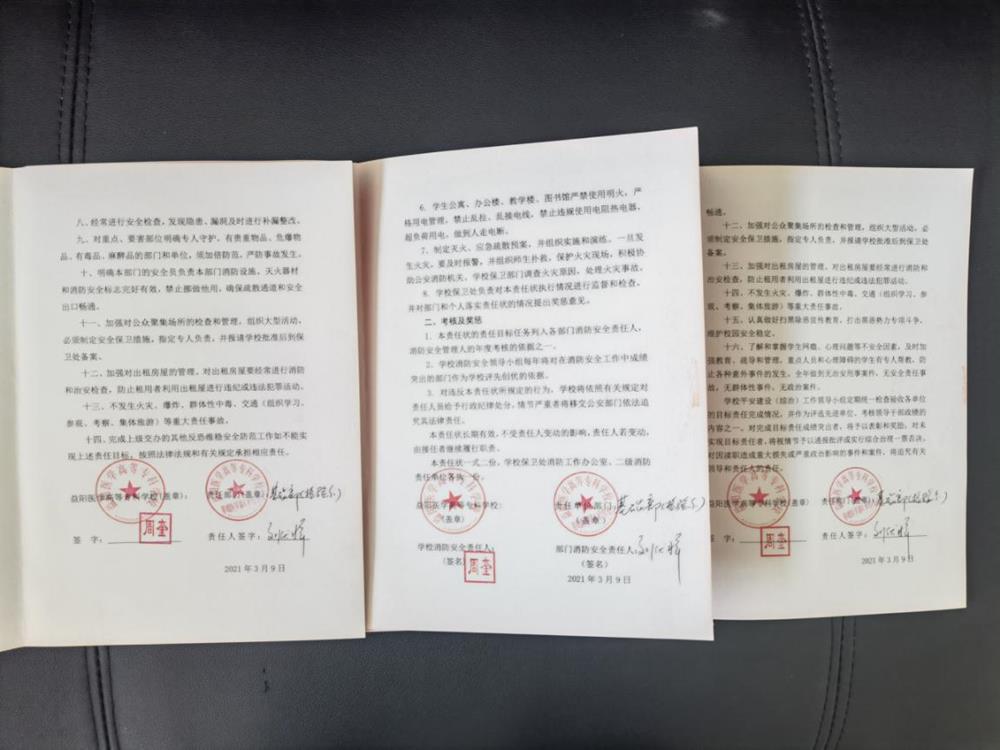 八、经常进行安全检查，发现隐患、漏洞及时进行补漏整改。
九、对重点、要害部位明确专人守护。有贵重物品、危爆物
品、有毒品、麻醉品的部门和单位，须加倍防范，严防事故发生。
十、明确本部门的安全员负责本部门消防设施、灭火器材
和消防安全标志完好有效，禁止挪做他用，确保疏散通道和安全
出口畅通。
十一、加强对公众聚集场所的检查和管理。组织大型活动，
必须制定安全保卫措施，指定专人负责，并报请学校批准后到保
卫处备案。
十二、加强对出租房屋的管理。对出租房屋要经常进行消防
和治安检查，防止租用者利用出租屋进行违纪或违法犯罪活动。
十三、不发生火灾、爆炸、群体性中毒、交通（组织学习、
参观、考察、集体旅游）等重大责任事故。
十四、完成上级交办的其他反恐维稳安全防范工作如不能实
现上述责任目标，按照法律法规和有关规定承担相应责任。
益阳医学高等专科学校(盖章)： 责任部门(盖章)：
签 字： 周奎 责任人签字：
2021年3月9日
6、学生公寓、办公楼、教学楼、图书馆严禁使用明火，严
格用电管理，禁止乱拉、乱接电线，禁止违规使用电阻热电器、
超负荷用电，做到人走电断。
7、制定灭火、应急疏散预案，并组织实施和演练。一旦发
生火灾，要及时报警，并组织师生扑救，保护火灾现场，积极协
助公安消防机关、学校保卫部门调查火灾原因，处理火灾事故。
8、学校保卫处负责对本责任状执行情况进行监督和检查，
并对部门和个人落实责任状的情况提出奖惩意见。
二、考核及奖惩
1、本责任状的责任目标任务列入各部门消防安全责任人、
消防安全管理人的年度考核的依据之一。
2、学校消防安全领导小组每年将对在消防安全工作中成绩
突出的部门作为学校评先创优的依据。
3、对违反本责任状所规定的行为，学校将依照有关规定对
责任人员给予行政纪律处分，情节严重者将移交公安部门依法追
究其法律责任。
本责任状长期有效，不受责任人变动的影响，责任人若变动，
由接任者继续履行职责。
本责任状一式二份，学校保卫处消防工作办公室、二级消防
责任单位各执一份。
益阳医学高等专科学校： 责任单位部门：
（盖章） （盖章）
学校消防安全责任人： 部门消防安全责任人：
（签名） 周奎 （签名）
2021年3月9日
畅通。
十二、加强对公众聚集场所的检查和管理，组织大型活动，必
须制定安全保卫措施，指定专人负责，并报请学校批准后到保卫处
备案。
十三、加强对出租房屋的管理，对出租房屋要经常进行消防和
治安检查，防止租用者利用出租屋进行违纪或违法犯罪活动。
十四、不发生火灾、爆炸、群体性中毒、交通（组织学习、参
观、考察、集体旅游）等重大责任事故。
十五、认真做好扫黑除恶宣传教育，打击黑恶势力专项斗争，
维护校园安全稳定。
十六、了解和掌握学生网瘾、心理问题等不安全因素，及时加
强教育、疏导和管理。重点人员和心理障碍的学生有专人帮教，防
止各种意外事件的发生。全年做到无治安用事案件，无安全责任事
故，无群体性事件、无政治案件。
学校平安建设（综治）工作领导小组定期统一检查验收各单位
的目标责任完成情况，并作为评选先进单位、考核领导干部政绩的
内容之一。对完成目标责任成绩突出者，将予以表彰和奖励；对未
实现目标责任者，将视情节予以通报批评或实行综合治理一票否决，
对因渎职造成重大损失或严重政治影响的事件和案件，将追究有关
领导和责任人的责任。
益阳医学高等专科学校(盖章)： 责任部门(盖章)：
签 字： 周奎 责任人签字：
2021年3月9日